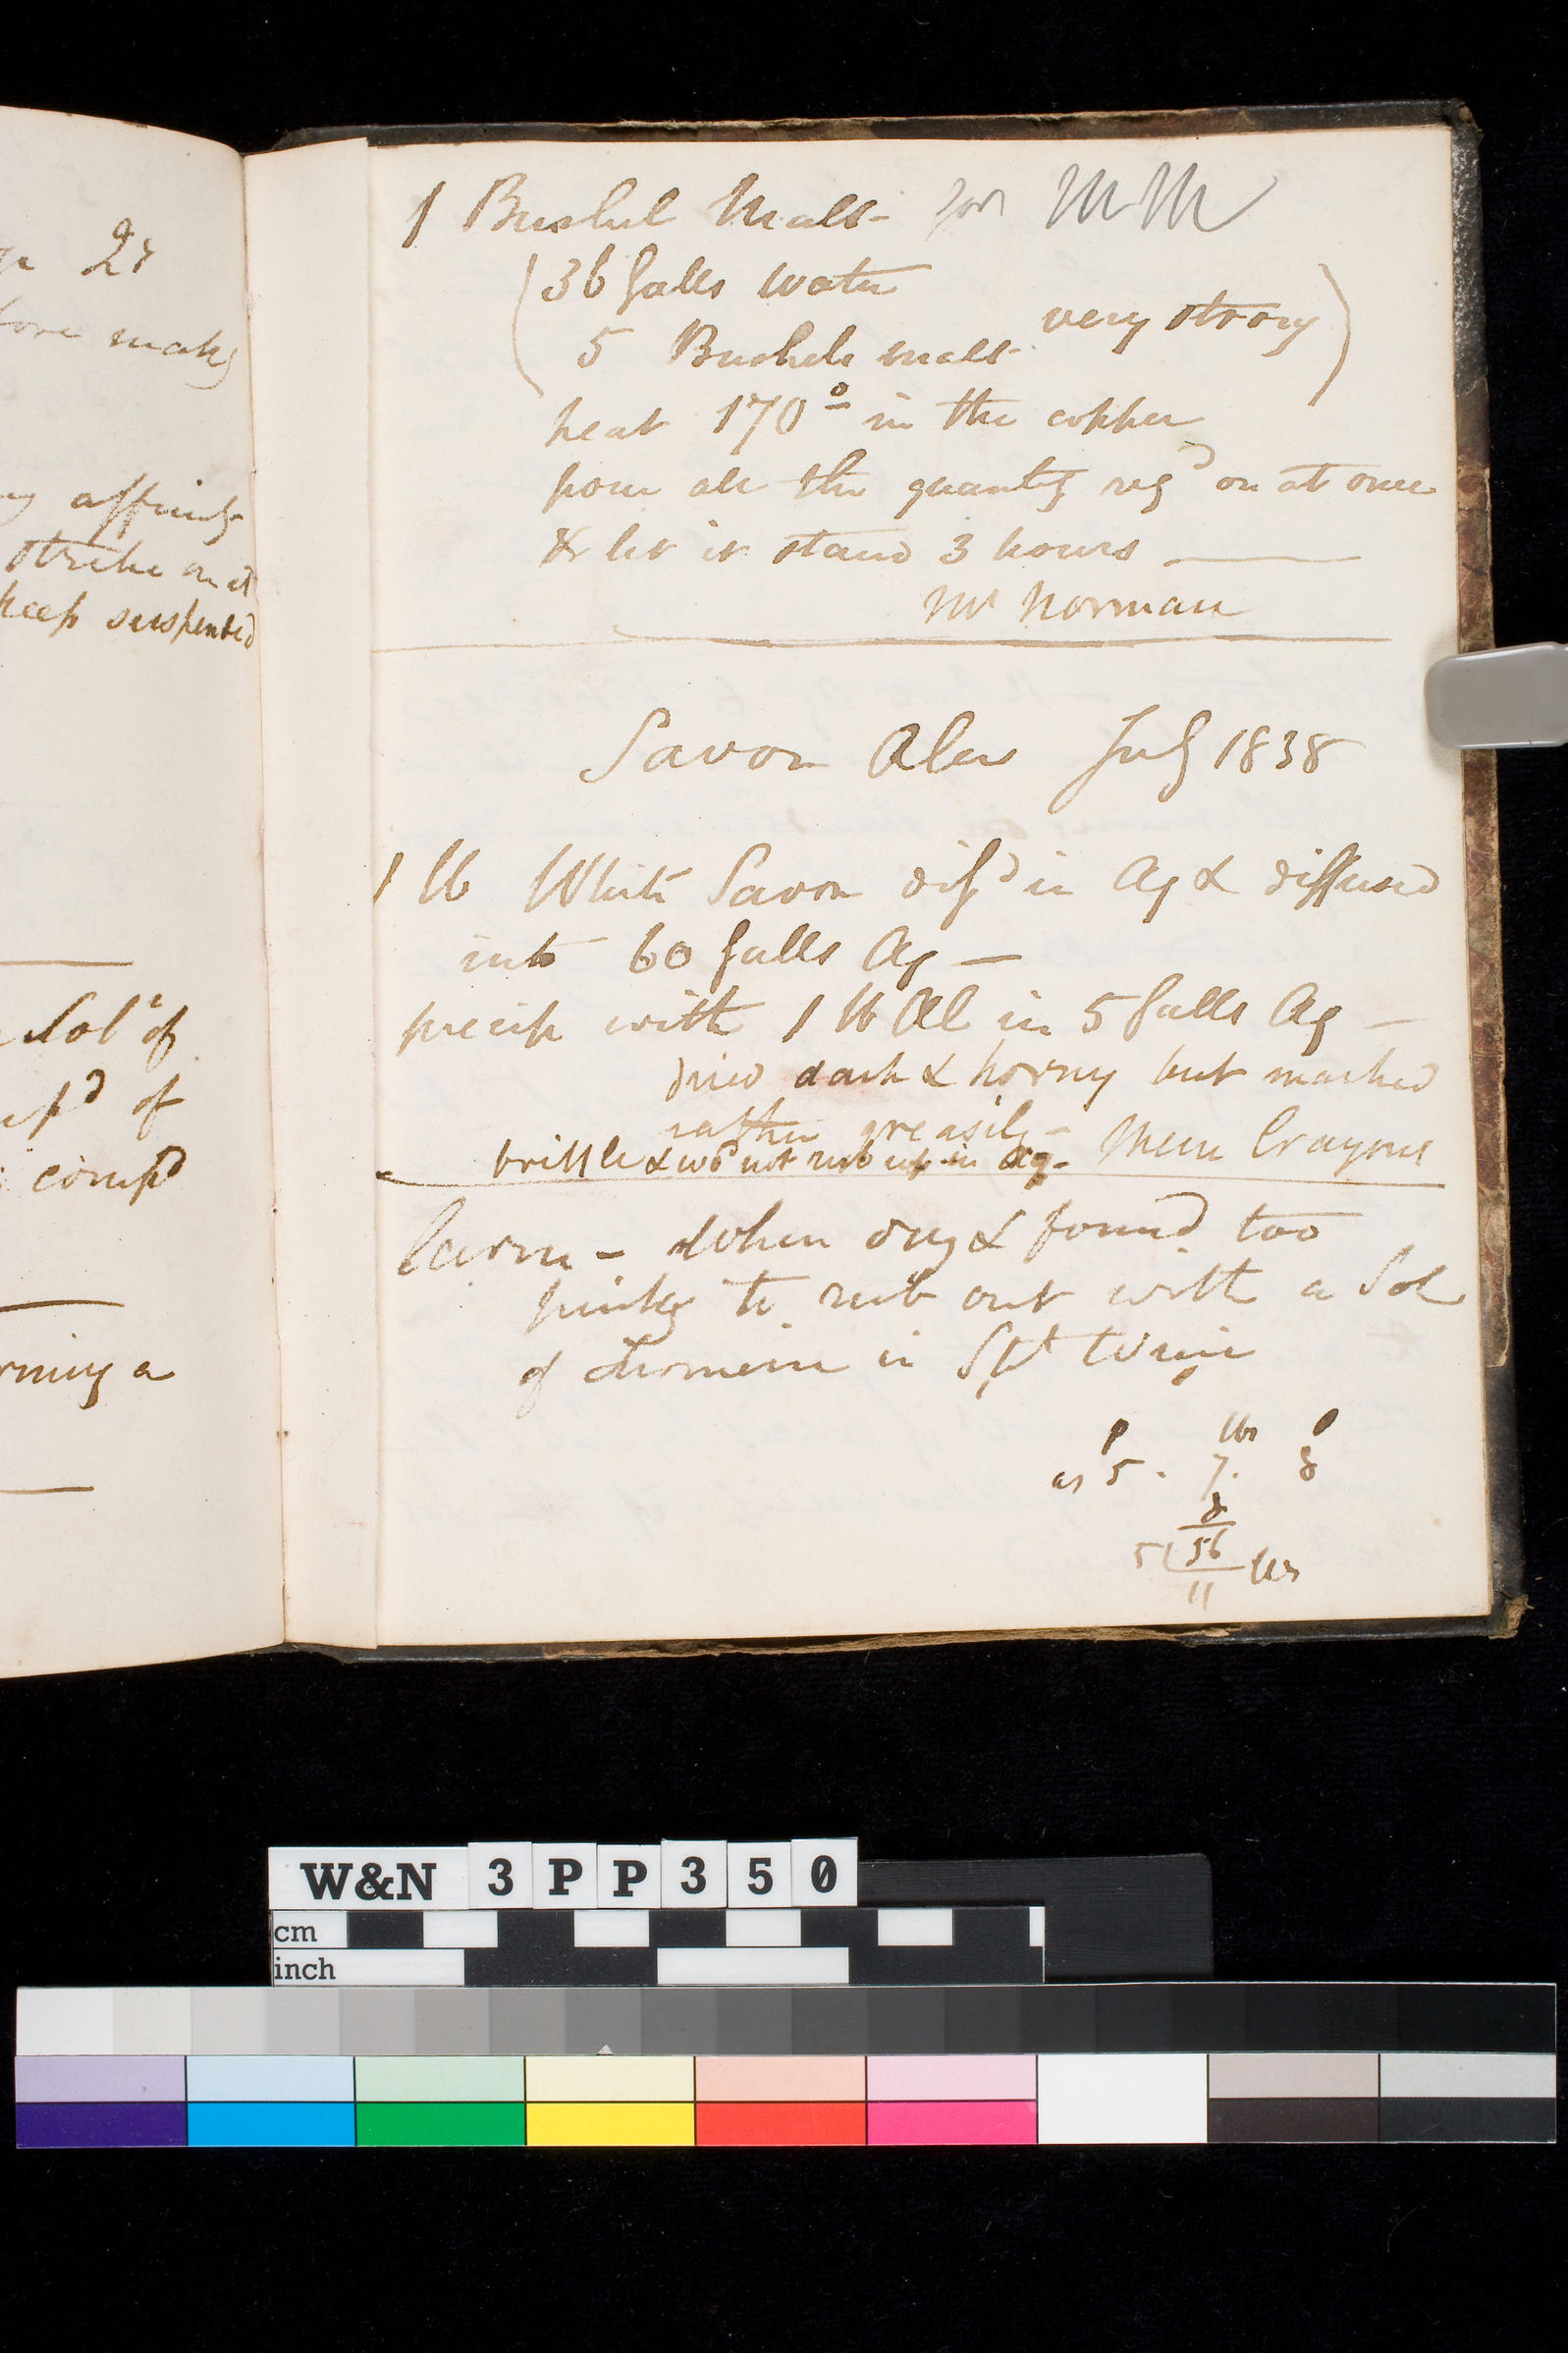 2s
fore mak͏g
affinity
strike on it
keep suspended
Sol^n of
of
comp^d
rming a
1 Bushel Malt - for MM
(36 galls water
5 Bushels malt. very strong)
heat 170° in the copper
pour all the quantity req^d on at once
& let it stand 3 hours
Mr Norman
Savon Alum July 1838
1 lb White Savon diss^d in Aq & diffused
into 60 galls Aq —
precip with 1 lb Al in 5 galls Aq —
dried dark & horny but marked
rather greasily -
brittle & w^d not rub up in Aq - Mem Crayons
Carm - When dry & found too
pinky to rub out with a Sol
of Turmeric in Sp^t Wine
p lbs p
as 5 . 7 . 8
8
5 ( 56
11 lbs
W&N 3PP350
cm
inch